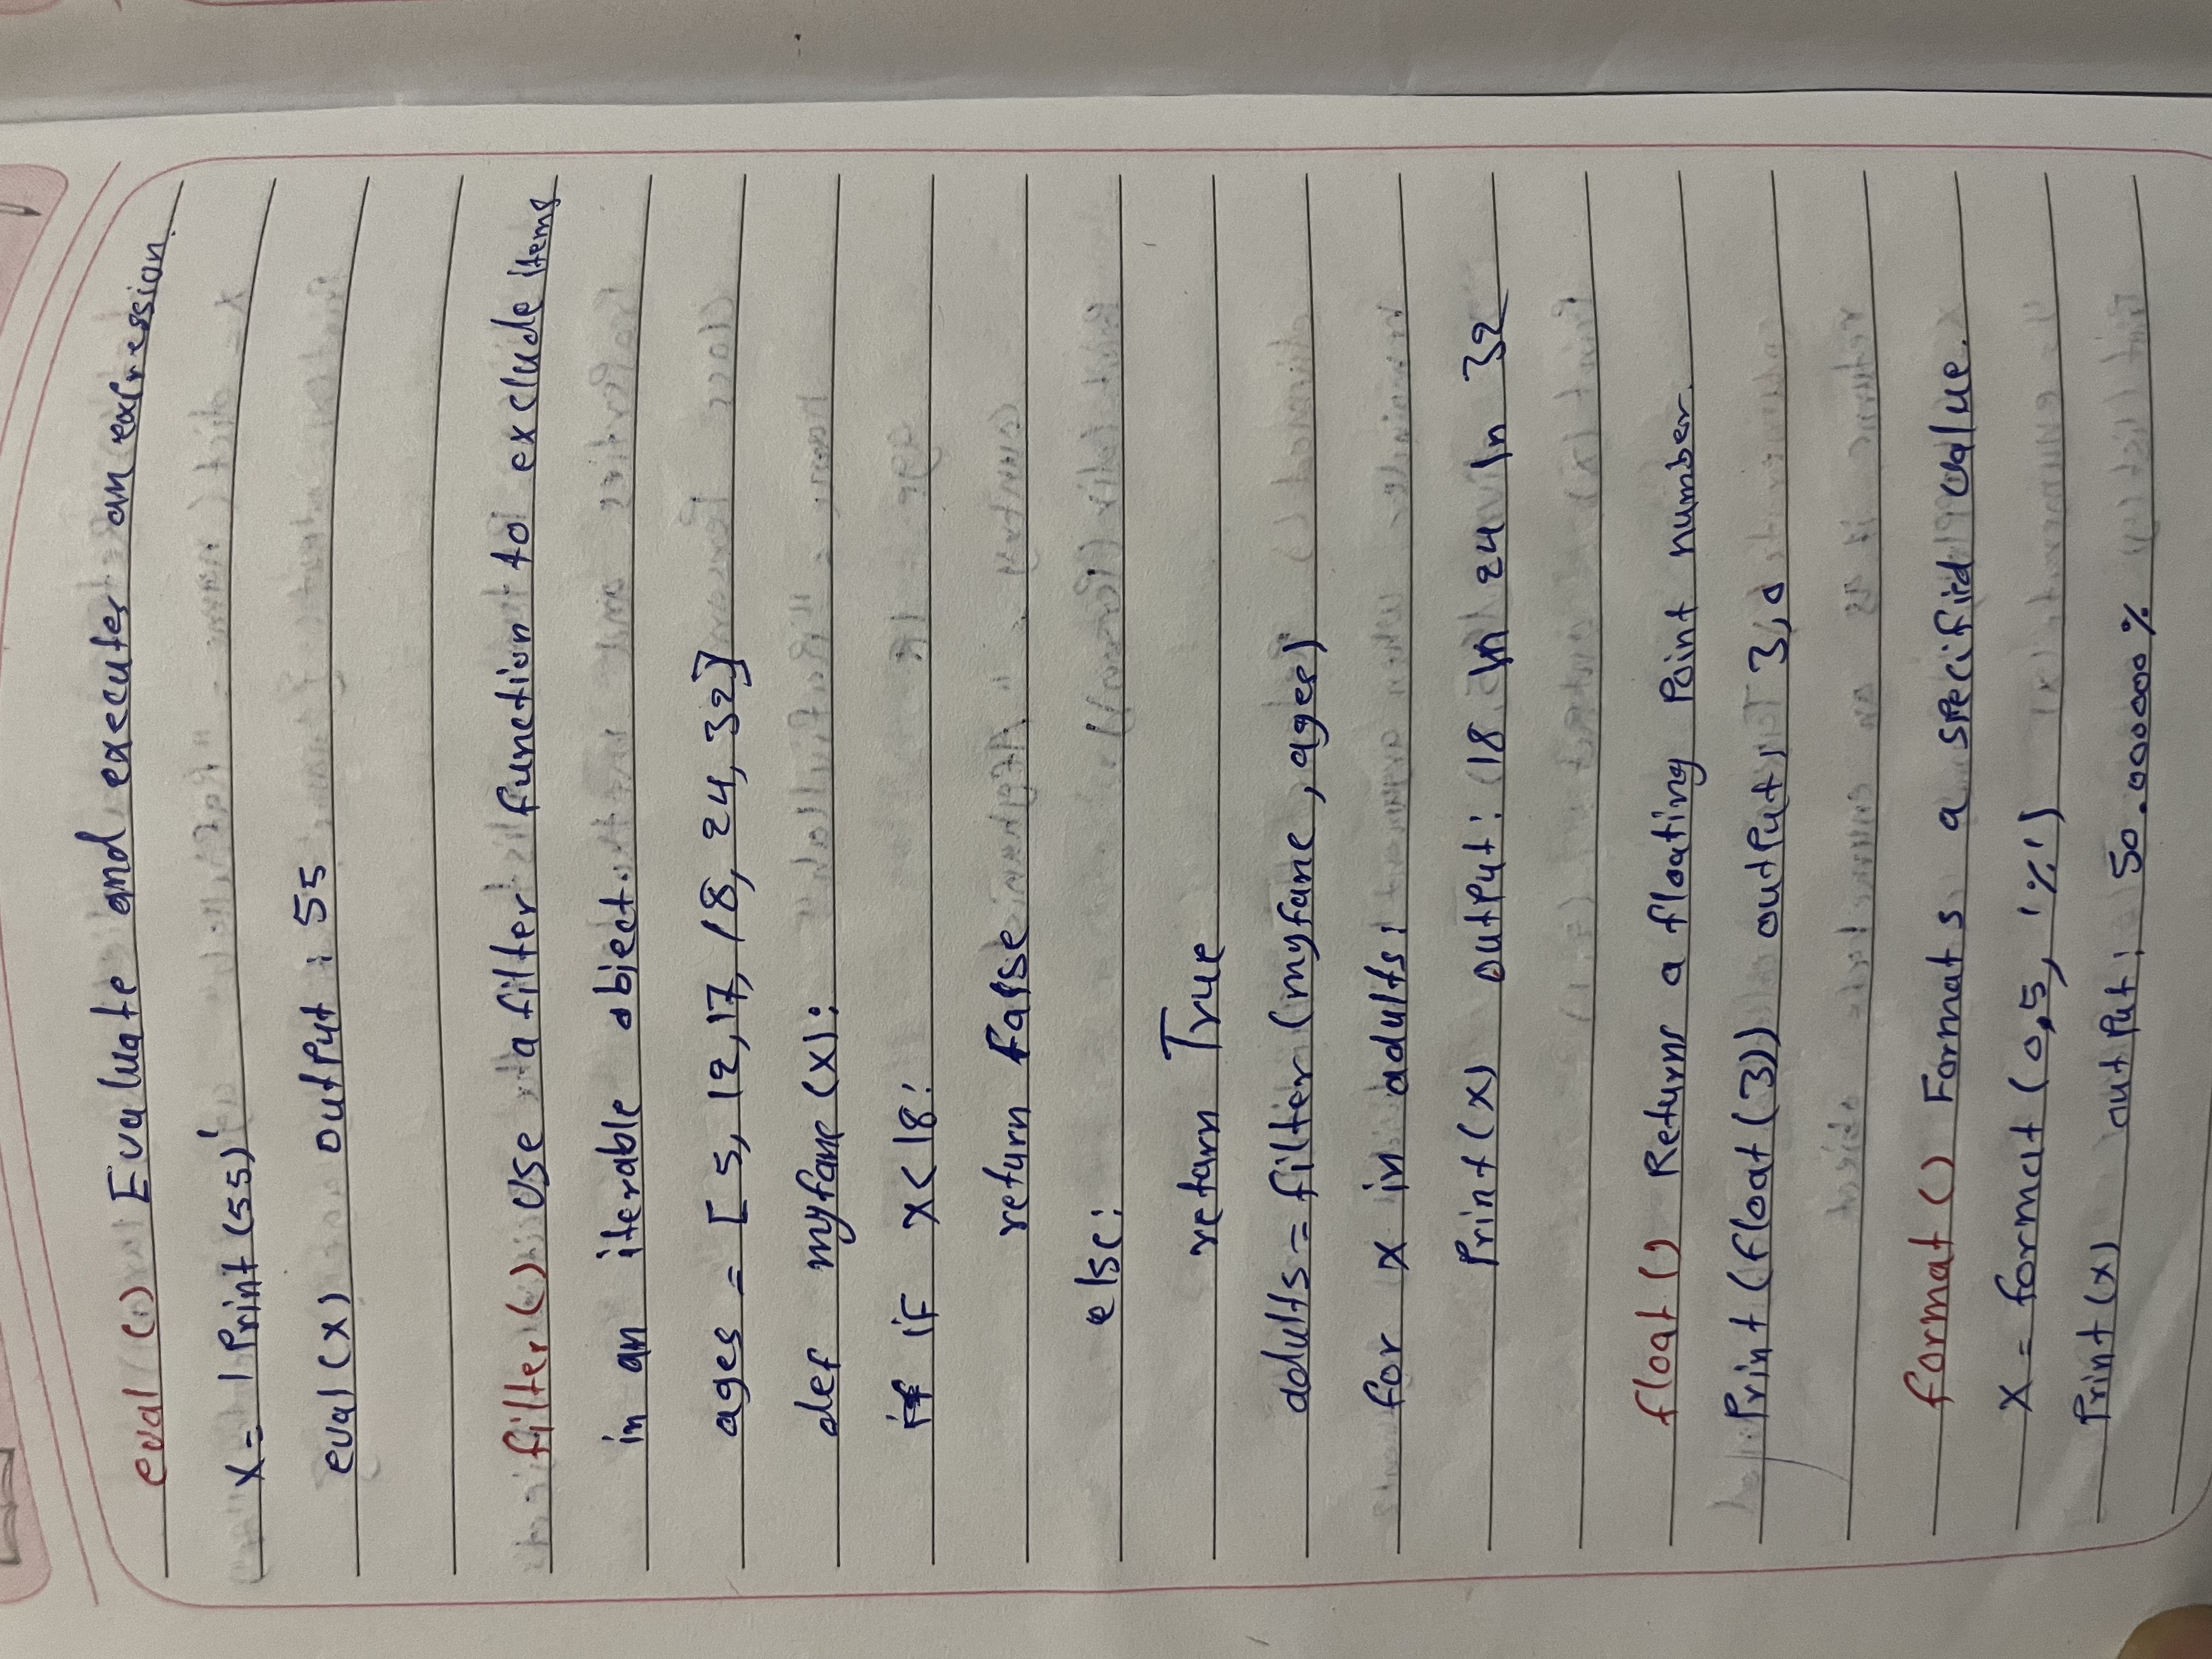 eval () Evaluate and executes an expression.
x = 'Print (55)'
eval (x) output : 55
filter () Use a filter function to exclude items
in an iterable object.
ages = [ 5, 12, 17, 18, 24, 32]
def myfanc (x):
if if x < 18:
return False
else:
return True
adults = filter (myfanc , ages)
for x in adults:
Print (x) output: 18 \n 24 \n 32
float () Returns a floating Point number.
Print (float (3)) output: 3,0
format () Formats a specifid value.
x = format (0,5, '%')
Print (x) output: 50.000000 %